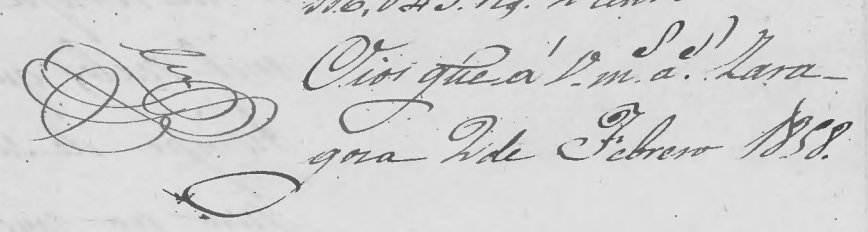 Dios gũe á V. m.s a.s Zara-
goza 2 de Febrero 1858.